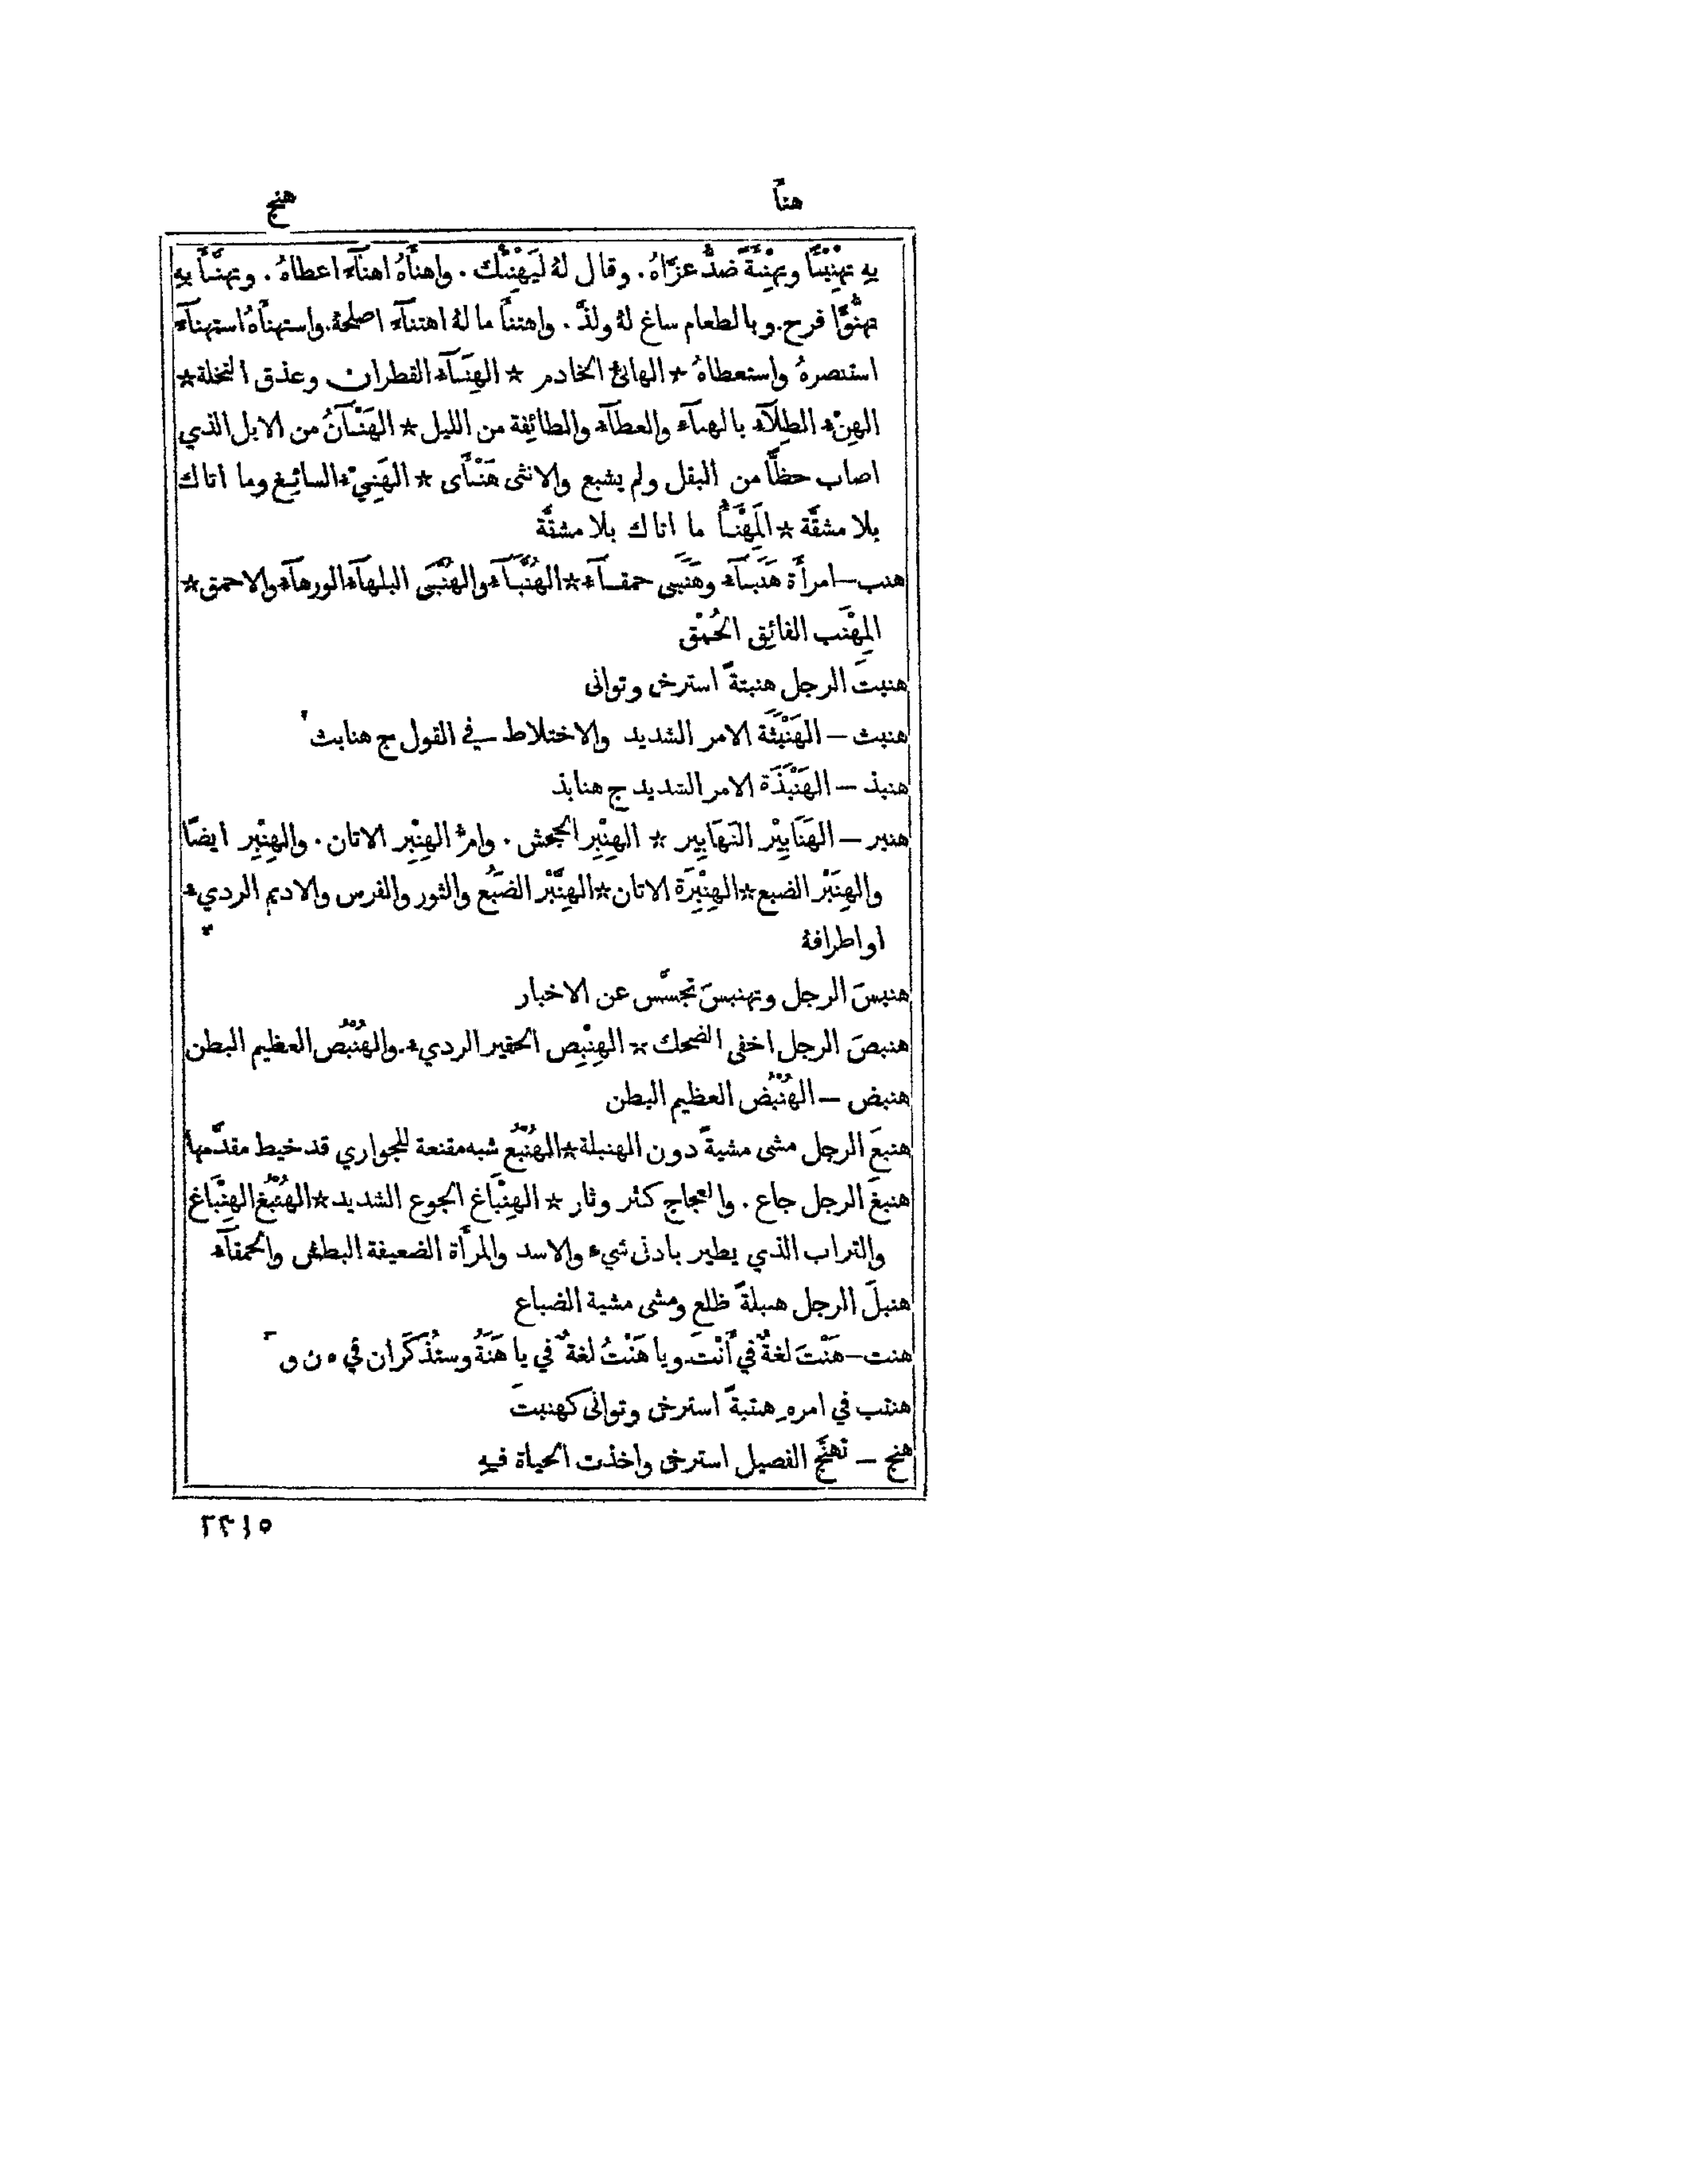 هنأ
هنج
بهِ تهنِئْئًا وتهنِئَةً ضدُّ عزَّاهُ. وقال لهُ لِيَهْنِئْك. واهنأَهُ اهنآء اعطاهُ. وتهنَّأَ بهِ
تهنُّوًّا فرح. وبالطعام ساغ لهُ ولذَّ. واهتنأَ ما لهُ اهتنآء اصلحهُ. واستهنأَهُ استهنآء
استنصرهُ واستعطاهُ * الهانئُ الخادم * الهِنَآء القطران وعذق النخلة *
الهِنْء الطِلَآء بالهنآء والعطآء والطائِفة من الليل * الهَنْآنُ من الابل الذي
اصاب حظًّا من البقل ولم يشبع والانثى هَنْأَى * الهَنِيْء السائِغ وما اتاك
بلا مشقَّة * المَهْنَأُ ما اتاك بلا مشقَّة
هنب — امرأَة هَنَبَآء وهَنَبَى حمقآء * الهُنَّبَآء والهُنَّبَى البلهآء الورهآء والاحمق *
المِهْنَب الفائِق الحُمْق
هنبتَ الرجل هنبتةً استرخى وتوانى
هنبث — الهَنْبَثَة الامر الشديد والاختلاط في القول ج هنابث
هنبذ — الهَنْبَذَة الامر الشديد ج هنابذ
هنبر — الهَنَابِيْر النَهَابِير * الهِنْبِر الجحش. وامُّ الهِنْبِر الاتان. والهِنْبِر ايضًا
والهِنَبْر الضبع * الهِنْبِرَة الاتان * الهِنَّبْر الضَبُع والثور والفرس والاديم الرديء
او اطرافهُ
هنبسَ الرجل وتهنبسَ تجسَّس عن الاخبار
هنبصَ الرجل اخفى الضحك * الهِنْبِص الحقير الرديء. والهُنْبُص العظيم البطن
هنبض — الهُنْبُض العظيم البطن
هنبعَ الرجل مشى مشيةً دون الهنبلة * الهُنْبُع شبه مقنعة للجواري قد خيط مقدَّمها
هنبغَ الرجل جاع. والعجاج كثر وثار * الهِنْبَاغ الجوع الشديد * الهُنْبُغ الهِنْبَاغ
والتراب الذي يطير بادنى شيء والاسد والمرأَة الضعيفة البطش والحمقآء
هنبلَ الرجل هنبلةً ظلع ومشى مشية الضباع
هنت — هَنْتَ لغةٌ في أَنْتَ ويا هَنْتُ لغةٌ في يا هَنَةُ وستُذكَران في ه ن و
هنتب في امرهِ هنتبةً استرخى وتوانى كهنبتَ
هنج — تهنَّج الفصيل استرخى واخذت الحياة فيهِ
٢٢١٥